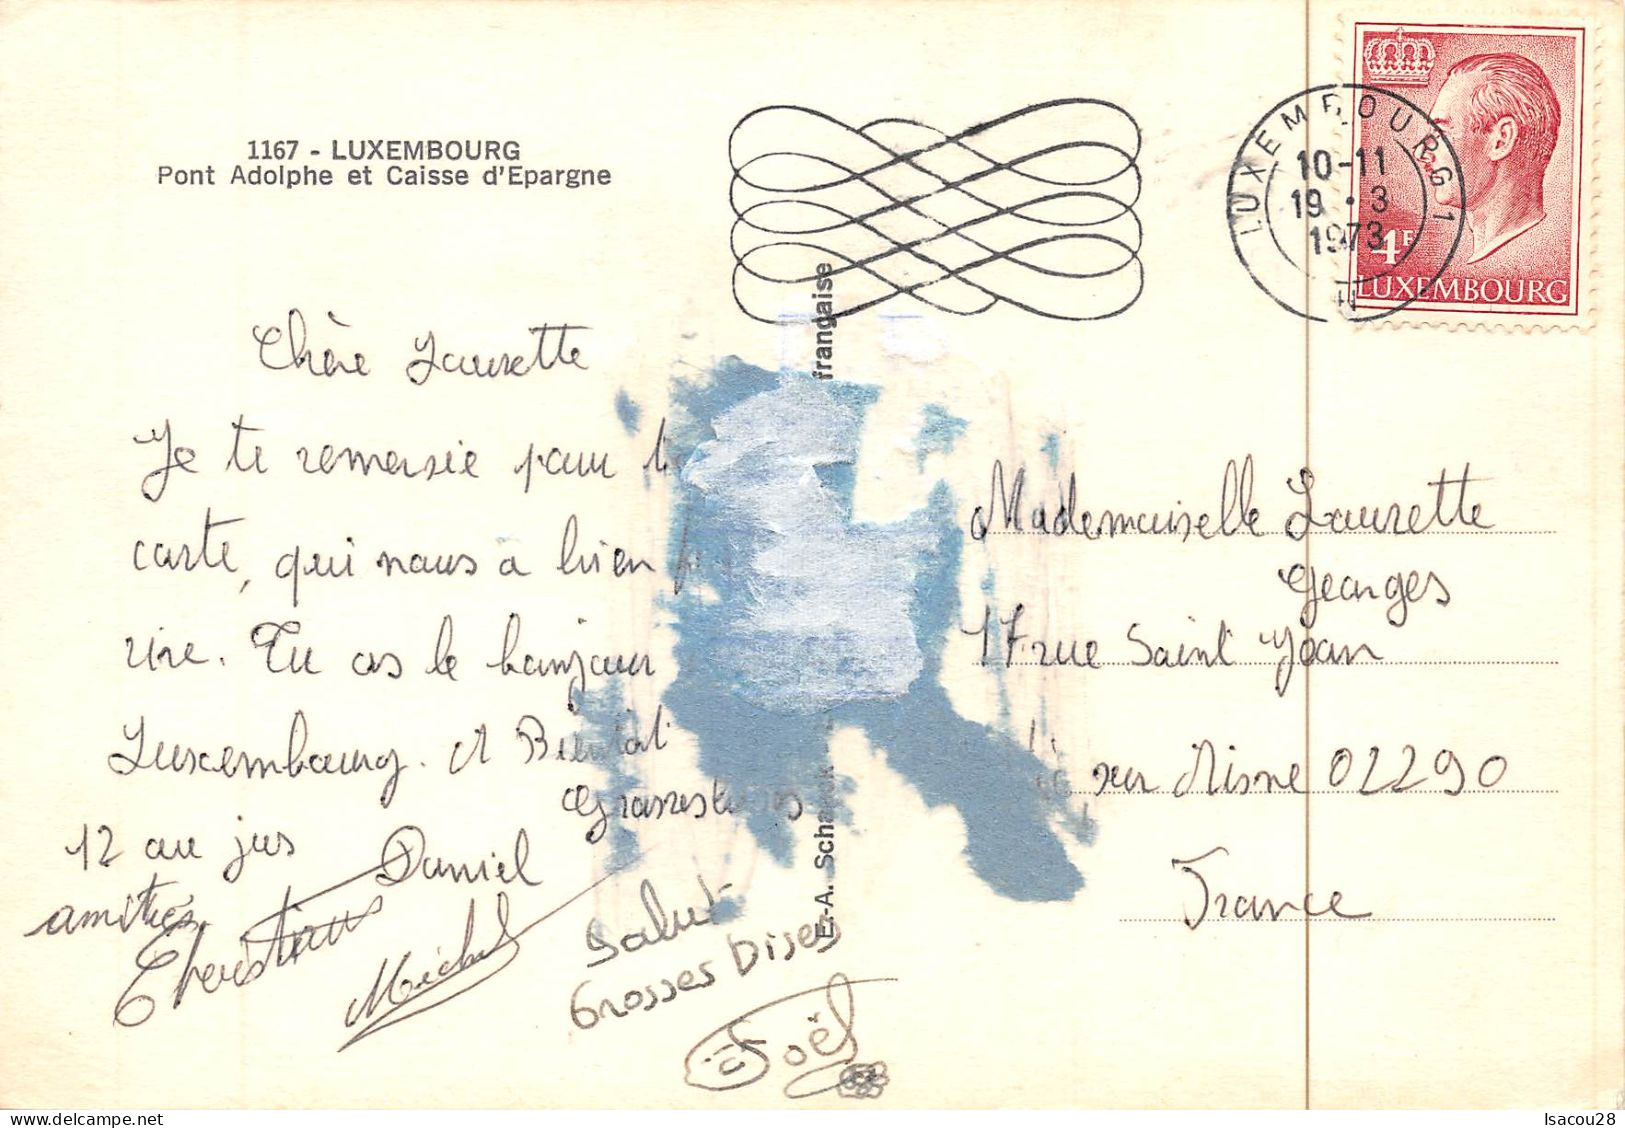 1167 - LUXEMBOURG
Pont Adolphe et Caisse d'Epargne
LUXEMBOURG 1
10-11
19 • 3
1973
4F
LUXEMBOURG
française
E.-A. Schaack
Chère Laurette
Je te remersie pour
carte, qui nous a bien
rire. Tu as le bonjour
Luxembourg. A Bientôt
12 au jus
Daniel
amitiés
Christian
Michel
Salut
Grosses Bises
Joël
Mademoiselle Laurette
Georges
17 rue Saint Jean
sur Aisne 02290
France
Isacou28